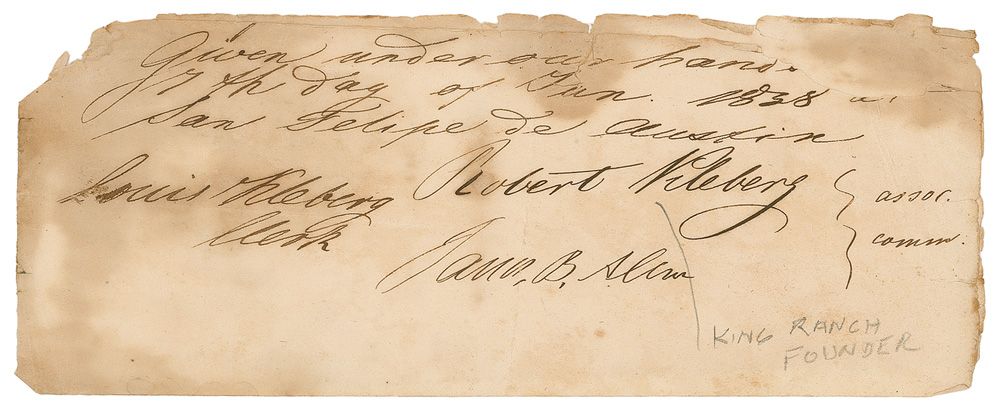 Given under our hands
17th day of Jan. 1838 a.
San Felipe de Austin
Louis Kleberg Robert Kleberg assoc.
Clerk comm.
B.
KING RANCH
FOUNDER